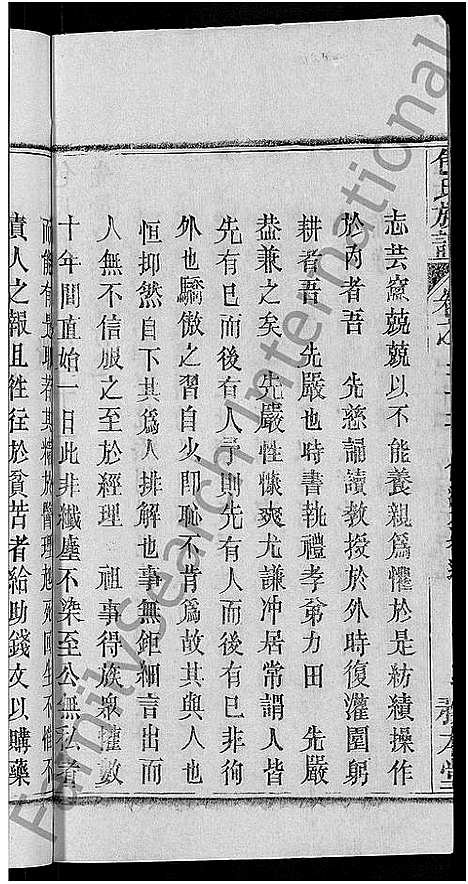 氏族譜
志芸窻兢兢以不能養親爲懼於是紡績操作
於內者吾　先慈誦讀教授於外時復灌園躬
耕者吾　先嚴也時書執禮孝弟力田　先嚴
葢兼之矣　先嚴性慷爽尤謙冲居常謂人皆
先有已而後有人予則先有人而後有已非徇
外也驕傲之習自少卽恥不肯爲故其與人也
恒抑然自下其爲人排解也事無鉅細言出而
人無不信服之至於經理　祖事得族衆懽數
十年間直始一日此非纖塵不染至公無私者
而能有是耶若其精於醫理
責人之報且徃徃於貧苦者給助錢文以購藥
FamilySearch International